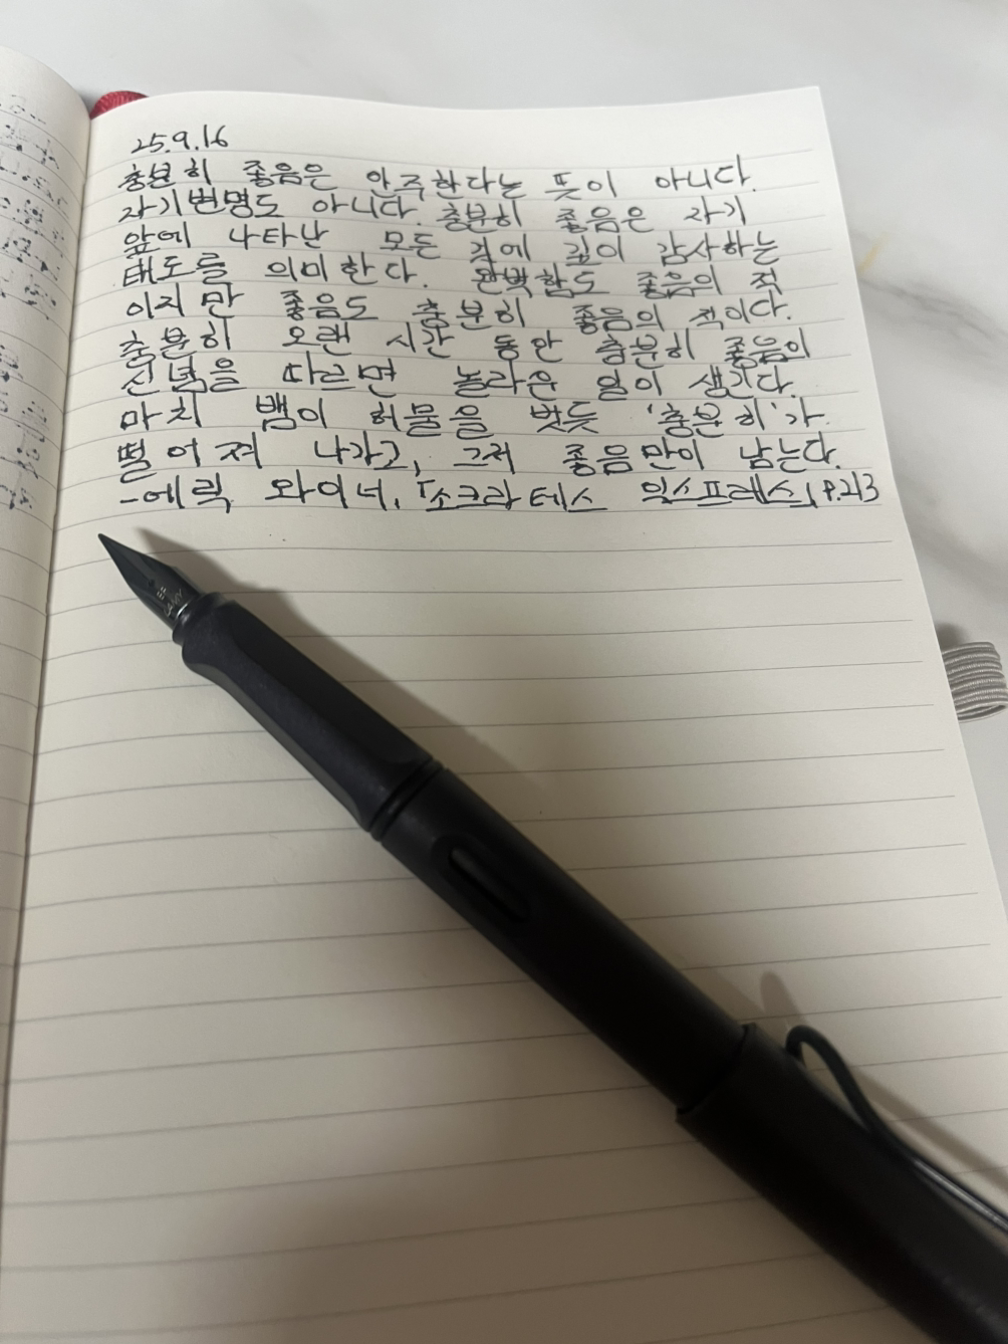 25.9.16
충분히 좋음은 안주한다는 뜻이 아니다.
자기변명도 아니다. 충분히 좋음은 자기
앞에 나타난 모든 것에 깊이 감사하는
태도를 의미한다. 완벽함도 좋음의 적
이지만 좋음도 충분히 좋음의 적이다.
충분히 오랜 시간 동안 충분히 좋음의
신념을 따르면 놀라운 일이 생긴다.
마치 뱀이 허물을 벗듯 '충분히'가
떨어져 나가고, 그저 좋음만이 남는다.
-에릭 와이너, 「소크라테스 익스프레스」, P.213
EF
LAMY